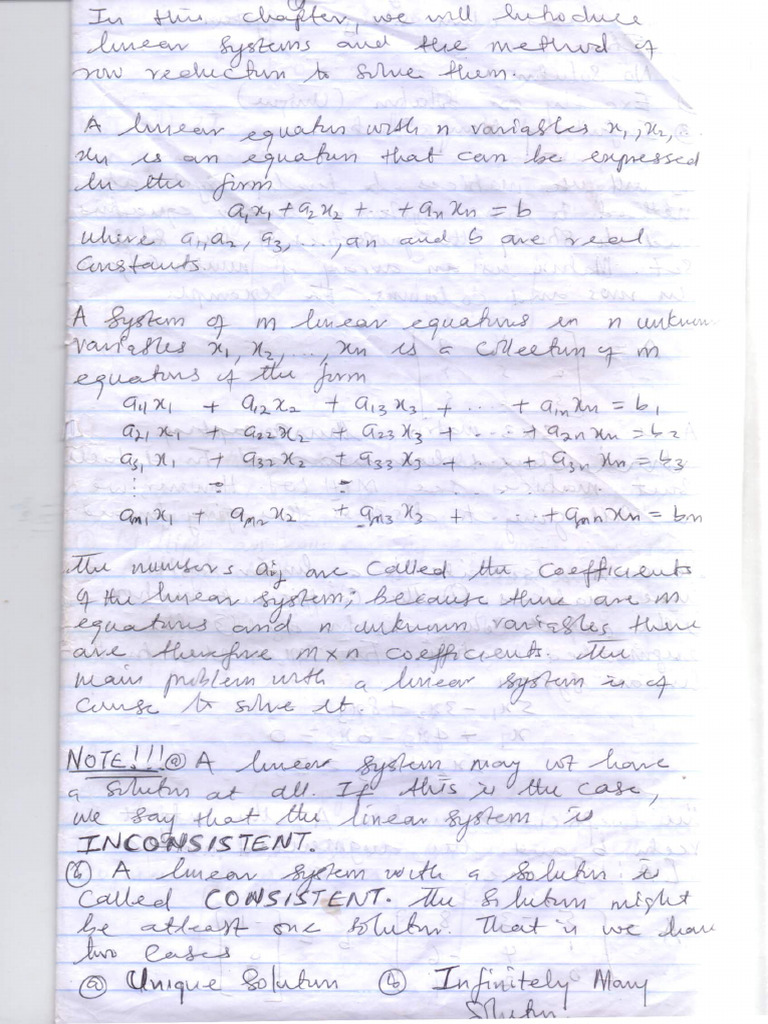 In this chapter, we will introduce
linear systems and the method of
row reduction to solve them.
A linear equation with n variables x₁, x₂,
xn is an equation that can be expressed
in the form
a₁x₁ + a₂x₂ + · · + anxn = b
where a₁, a₂, a₃, ..., an and b are real
constants.
A system of m linear equations in n unknown
variables x₁, x₂, ..., xn is a collection of m
equations of the form
a₁₁x₁ + a₁₂x₂ + a₁₃x₃ + ··· + a₁nxn = b₁
a₂₁x₁ + a₂₂x₂ + a₂₃x₃ + ··· + a₂nxn = b₂
a₃₁x₁ + a₃₂x₂ + a₃₃x₃ + + a₃nxn = b₃
⋮ ⋮ ⋮
am₁x₁ + am₂x₂ + am₃x₃ + ··· + amnxn = bm
The numbers aij are called the coefficients
of the linear system; because there are m
equations and n unknown variables, there
are therefore m×n coefficients. The
main problem with a linear system is of
course to solve it.
NOTE!!! ⓐ A linear system may not have
a solution at all. If this is the case,
we say that the linear system is
INCONSISTENT.
ⓑ A linear system with a solution is
called CONSISTENT. The solution might
be atleast one solution. That is we have
two cases
ⓐ Unique Solution ⓑ Infinitely Many
Solution